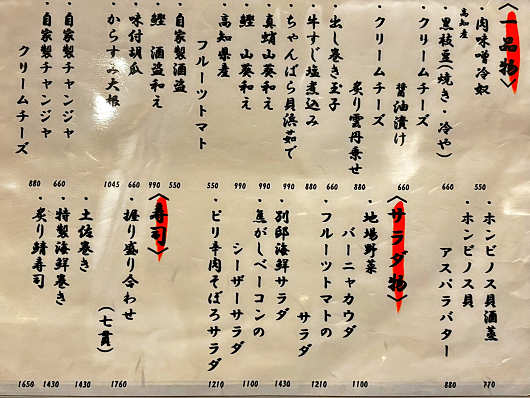 〈一品物〉
・肉味噌冷奴 550
高知産
・黒枝豆(焼き・冷や) 660
・クリームチーズ
醤油漬け 660
・クリームチーズ
炙り雲丹乗せ 880
・出し巻き玉子 660
・牛すじ塩煮込み 880
・ちゃんばら貝浜茹で 990
・真蛸 山葵和え 990
・鰹 山葵和え 990
・高知県産
フルーツトマト 550
・自家製酒盗 550
・鰹 酒盗和え 990
・味付胡瓜 660
・からすみ大根 1045
・自家製チャンジャ 660
・自家製チャンジャ
クリームチーズ 880
・ホンビノス貝酒蒸 770
・ホンビノス貝
アスパラバター 880
〈サラダ物〉
・地場野菜
バーニャカウダ 1100
・フルーツトマトの
サラダ 1210
・別邸海鮮サラダ 1430
・焦がしベーコンの
シーザーサラダ 1100
・ピリ辛肉そぼろサラダ 1210
〈寿司〉
・握り盛り合わせ
(七貫) 1760
・土佐巻き 1430
・特製海鮮巻き 1430
・炙り鯖寿司 1650